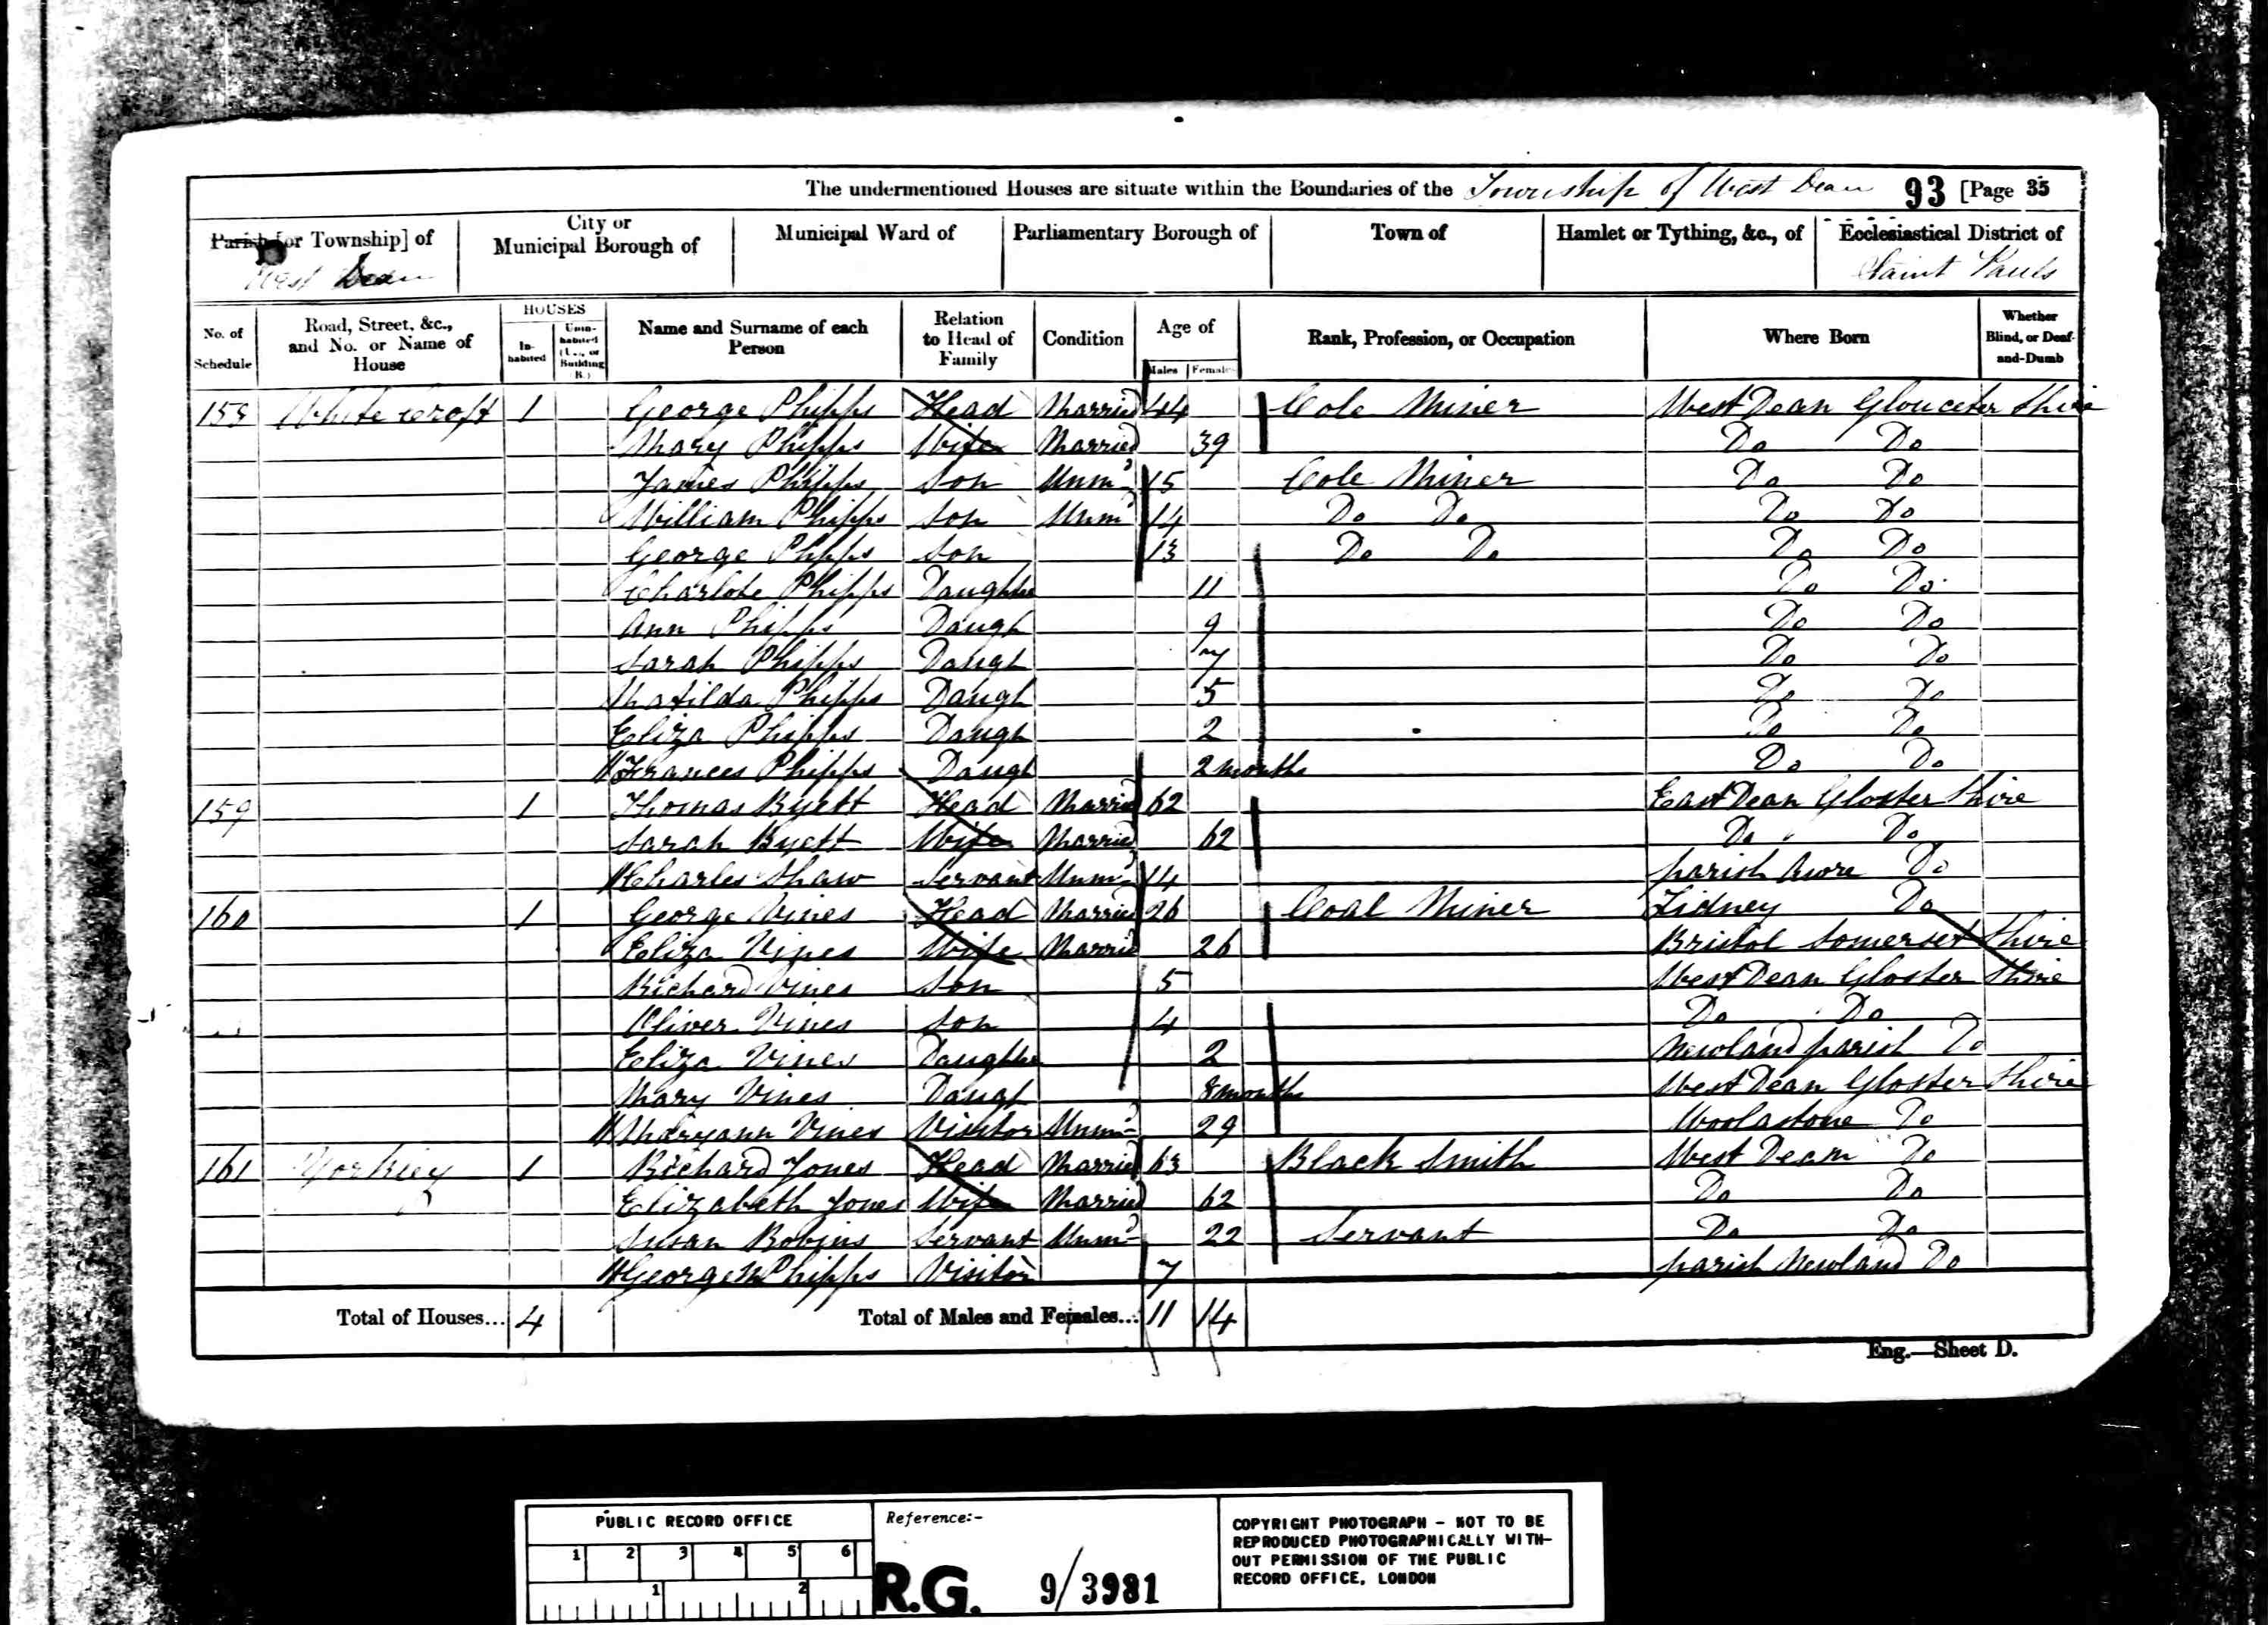 The undermentioned Houses are situate within the Boundaries of the Township of West Dean 93 [Page 35
Parish [or Township] of City or Municipal Borough of Municipal Ward of Parliamentary Borough of Town of Hamlet or Tything, &c., of Ecclesiastical District of
West Dean Saint Pauls
No. of Schedule Road, Street, &c., and No. or Name of House HOUSES In-habited Unin-habited (U., or Building B.) Name and Surname of each Person Relation to Head of Family Condition Age of Males Females Rank, Profession, or Occupation Where Born Whether Blind, or Deaf-and-Dumb
158 White croft 1 George Phipps Head Married 44 Cole Miner West Dean Gloucester Shire
Mary Phipps Wife Married 39 Do Do
James Phipps Son Unmd 15 Cole Miner Do Do
William Phipps Son Unmd 14 Do Do Do Do
George Phipps Son 13 Do Do Do Do
Charlote Phipps Daughter 11 Do Do
Ann Phipps Daugh 9 Do Do
Sarah Phipps Daugh 7 Do Do
Matilda Phipps Daugh 5 Do Do
Eliza Phipps Daugh 2 Do Do
Frances Phipps Daugh 2 months Do Do
159 1 Thomas Byett Head Married 62 East Dean Gloster Shire
Sarah Byett Wife Married 62 Do Do
Charles Shaw Servant Unmd 14 parish Awre Do
160 1 George Vines Head Married 26 Coal Miner Lidney Do
Eliza Vines Wife Married 26 Bristol Somerset Shire
Richard Vines Son 5 West Dean Gloster Shire
Oliver Vines Son 4 Do Do
Eliza Vines Daughter 2 Newland parish Do
Mary Vines Daugh 8 months West Dean Gloster Shire
Maryann Vines Visitor Unmd 29 Woolastone Do
161 Yorkley 1 Richard Jones Head Married 63 Black Smith West Dean Do
Elizabeth Jones Wife Married 62 Do Do
Susan Robins Servant Unmd 22 Servant Do Do
George Phipps Visitor 7 parish Newland Do
Total of Houses... 4 Total of Males and Females... 11 14
Eng.—Sheet D.
PUBLIC RECORD OFFICE
1 2 3 4 5 6
1 2
Reference:-
R.G. 9/3981
COPYRIGHT PHOTOGRAPH – NOT TO BE
REPRODUCED PHOTOGRAPHICALLY WITH-
OUT PERMISSION OF THE PUBLIC
RECORD OFFICE, LONDON